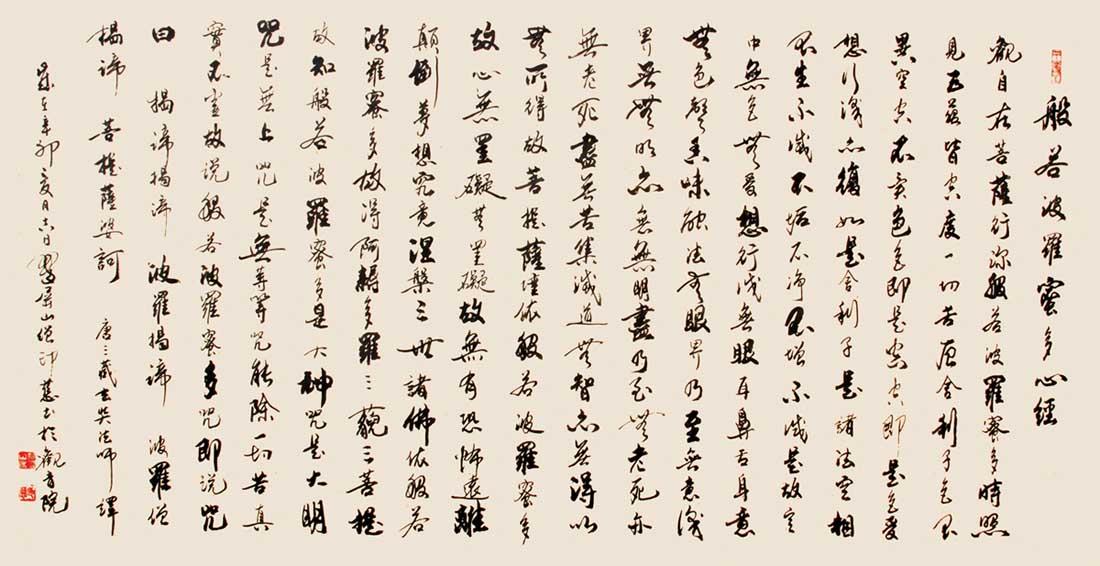 般若波羅蜜多心經
觀自在菩薩行深般若波羅蜜多時照
見五蘊皆空度一切苦厄舍利子色不
異空空不異色色即是空空即是色受
想行識亦復如是舍利子是諸法空相
不生不滅不垢不淨不增不減是故空
中無色無受想行識無眼耳鼻舌身意
無色聲香味觸法無眼界乃至無意識
界無無明亦無無明盡乃至無老死亦
無老死盡無苦集滅道無智亦無得以
無所得故菩提薩埵依般若波羅蜜多
故心無罣礙無罣礙故無有恐怖遠離
顛倒夢想究竟涅槃三世諸佛依般若
波羅蜜多故得阿耨多羅三藐三菩提
故知般若波羅蜜多是大神咒是大明
咒是無上咒是無等等咒能除一切苦真
實不虛故說般若波羅蜜多咒即說咒
曰 揭諦揭諦 波羅揭諦 波羅僧
揭諦 菩提薩婆訶 唐三藏玄奘法師譯
歲在辛卯夏月六日 屏山僧印慧書於觀音院